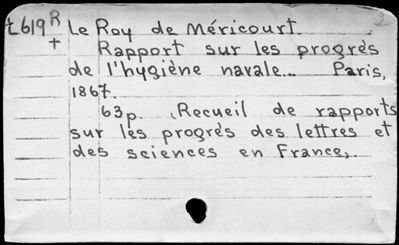 t619 R Le Roy de Méricourt. 2
+ Rapport sur les progrès
de l'hygiène navale... Paris,
1867.
63p. (Recueil de rapports
sur les progrès des lettres et
des sciences en France,.